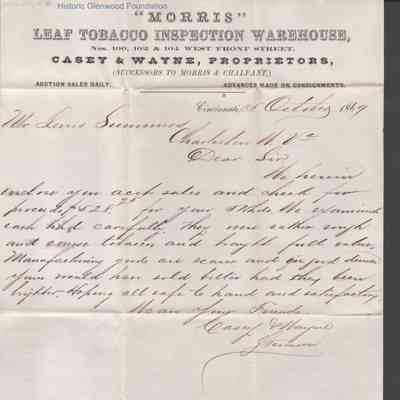 Historic Glenwood Foundation
"MORRIS"
LEAF TOBACCO INSPECTION WAREHOUSE,
Nos. 100, 102 & 104 WEST FRONT STREET.
CASEY & WAYNE, PROPRIETORS,
(SUCCESSORS TO MORRIS & CHALFANT,)
AUCTION SALES DAILY. ADVANCES MADE ON CONSIGNMENTS.
Cincinnati, 26 October 1869
Mr Lewis Summers
Charleston W Va
Dear Sir
We herein
enclose you acct sales and check for
proceeds $528. for your 4 Hhds. We examined
each hhd carefully they were rather rough
and coarse tobacco and brought full value.
Manufacturing goods are scarce and in good demand
yours would have sold better had they been
brighter. Hoping all safe to hand and satisfactory
We are Your Friends
Casey & Wayne